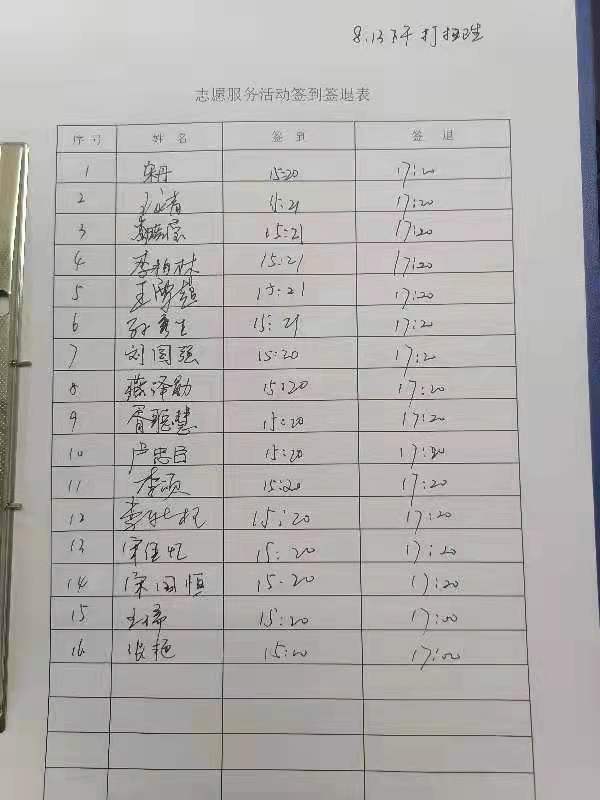 8.13下午 打扫
志愿服务活动签到签退表
序号 姓名 签到 签退
1 宋丹 15:20 17:20
2 15:21 17:20
3 15:21 17:20
4 李柏林 15:21 17:20
5 15:21 17:20
6 15:21 17:20
7 刘国强 15:20 17:20
8 15:20 17:20
9 胥聪慧 15:20 17:20
10 卢忠臣 15:20 17:20
11 李硕 15:20 17:20
12 15:20 17:20
13 宋佳忆 15:20 17:20
14 宋国恒 15:20 17:20
15 15:20 17:00
16 15:20 17:00